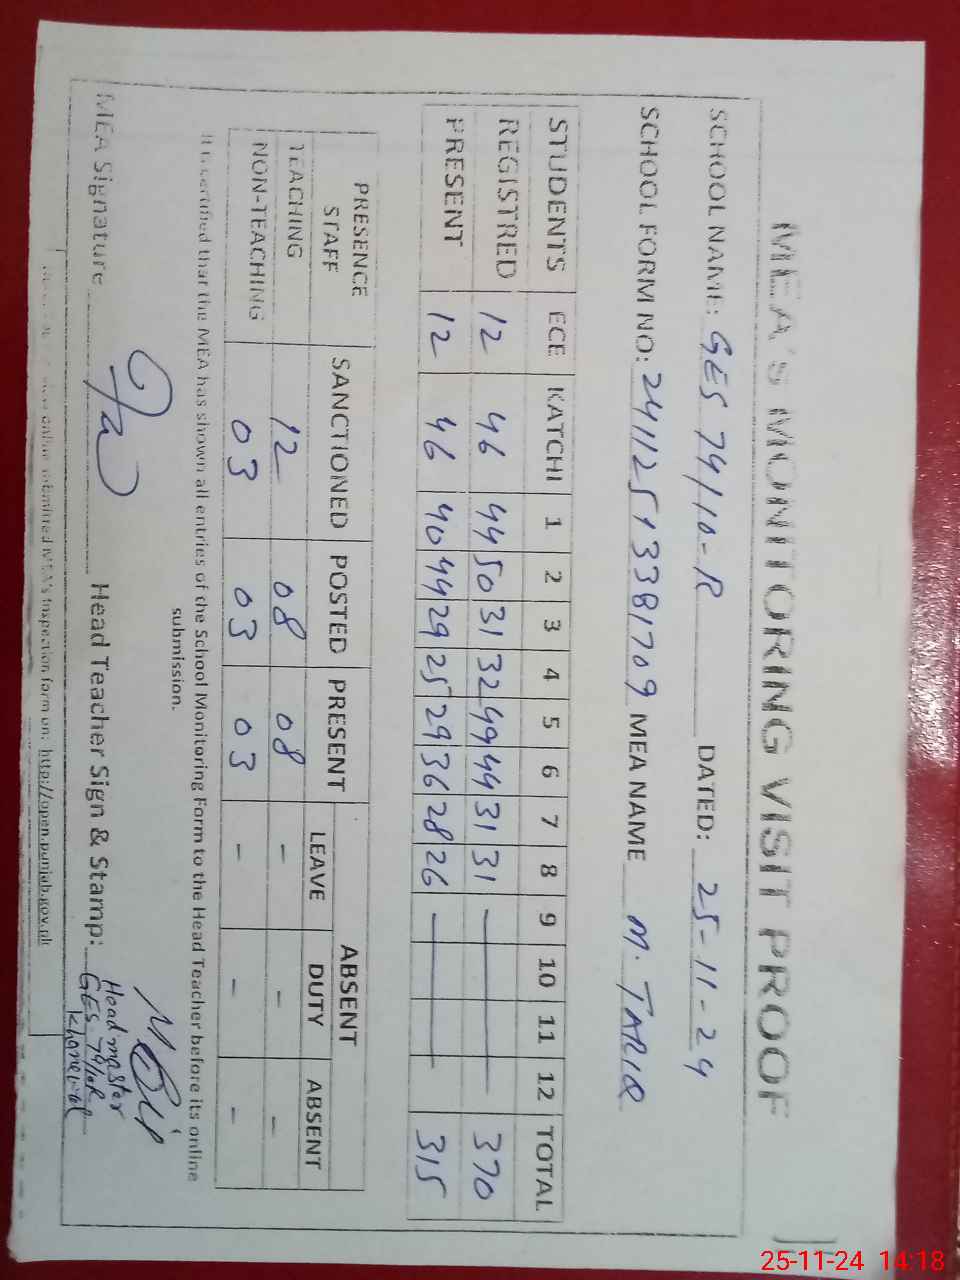 MEA's MONITORING VISIT PROOF
SCHOOL NAME: GES 74/10-R DATED: 25-11-24
SCHOOL FORM NO: 24112513381709 MEA NAME M. TARIQ
STUDENTS ECE KATCHI 1 2 3 4 5 6 7 8 9 10 11 12 TOTAL
REGISTRED 12 46 44 50 31 32 49 44 31 31 — 370
PRESENT 12 46 40 44 29 25 29 36 28 26 — 315
PRESENCE STAFF SANCTIONED POSTED PRESENT ABSENT
LEAVE DUTY ABSENT
TEACHING 12 08 08 - - -
NON-TEACHING 03 03 03 - - -
It is certified that the MEA has shown all entries of the School Monitoring Form to the Head Teacher before its online
submission.
MEA Signature Head Teacher Sign & Stamp:
Head master
GES 74/10R
Khanewal
online submitted MEA's Inspection form on: http://open.punjab.gov.pk
25-11-24 14:18